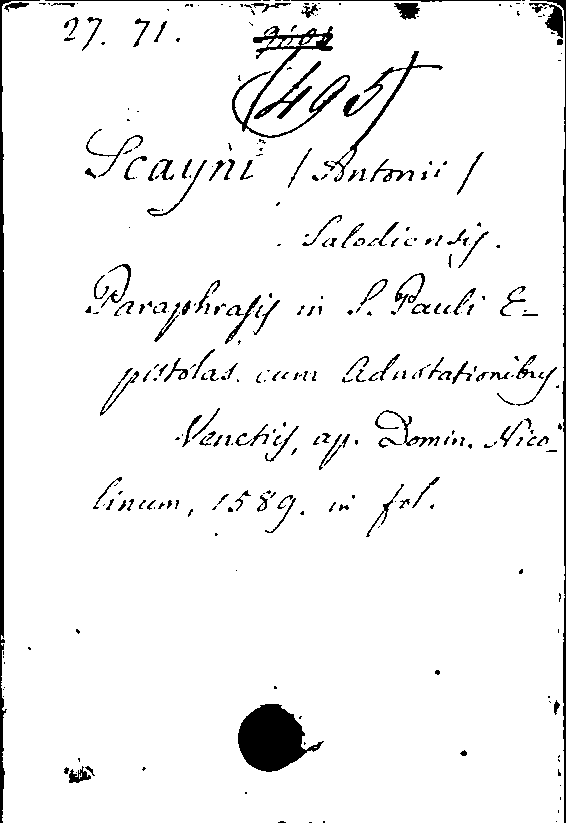 27. 71.
(495)
Scayni /Antonii/
Salodiensis.
Paraphrasis in S. Pauli E-
pistolas. cum Adnotationibus.
Venetiis, ap. Domin. Nico-
linum, 1589. in fol.